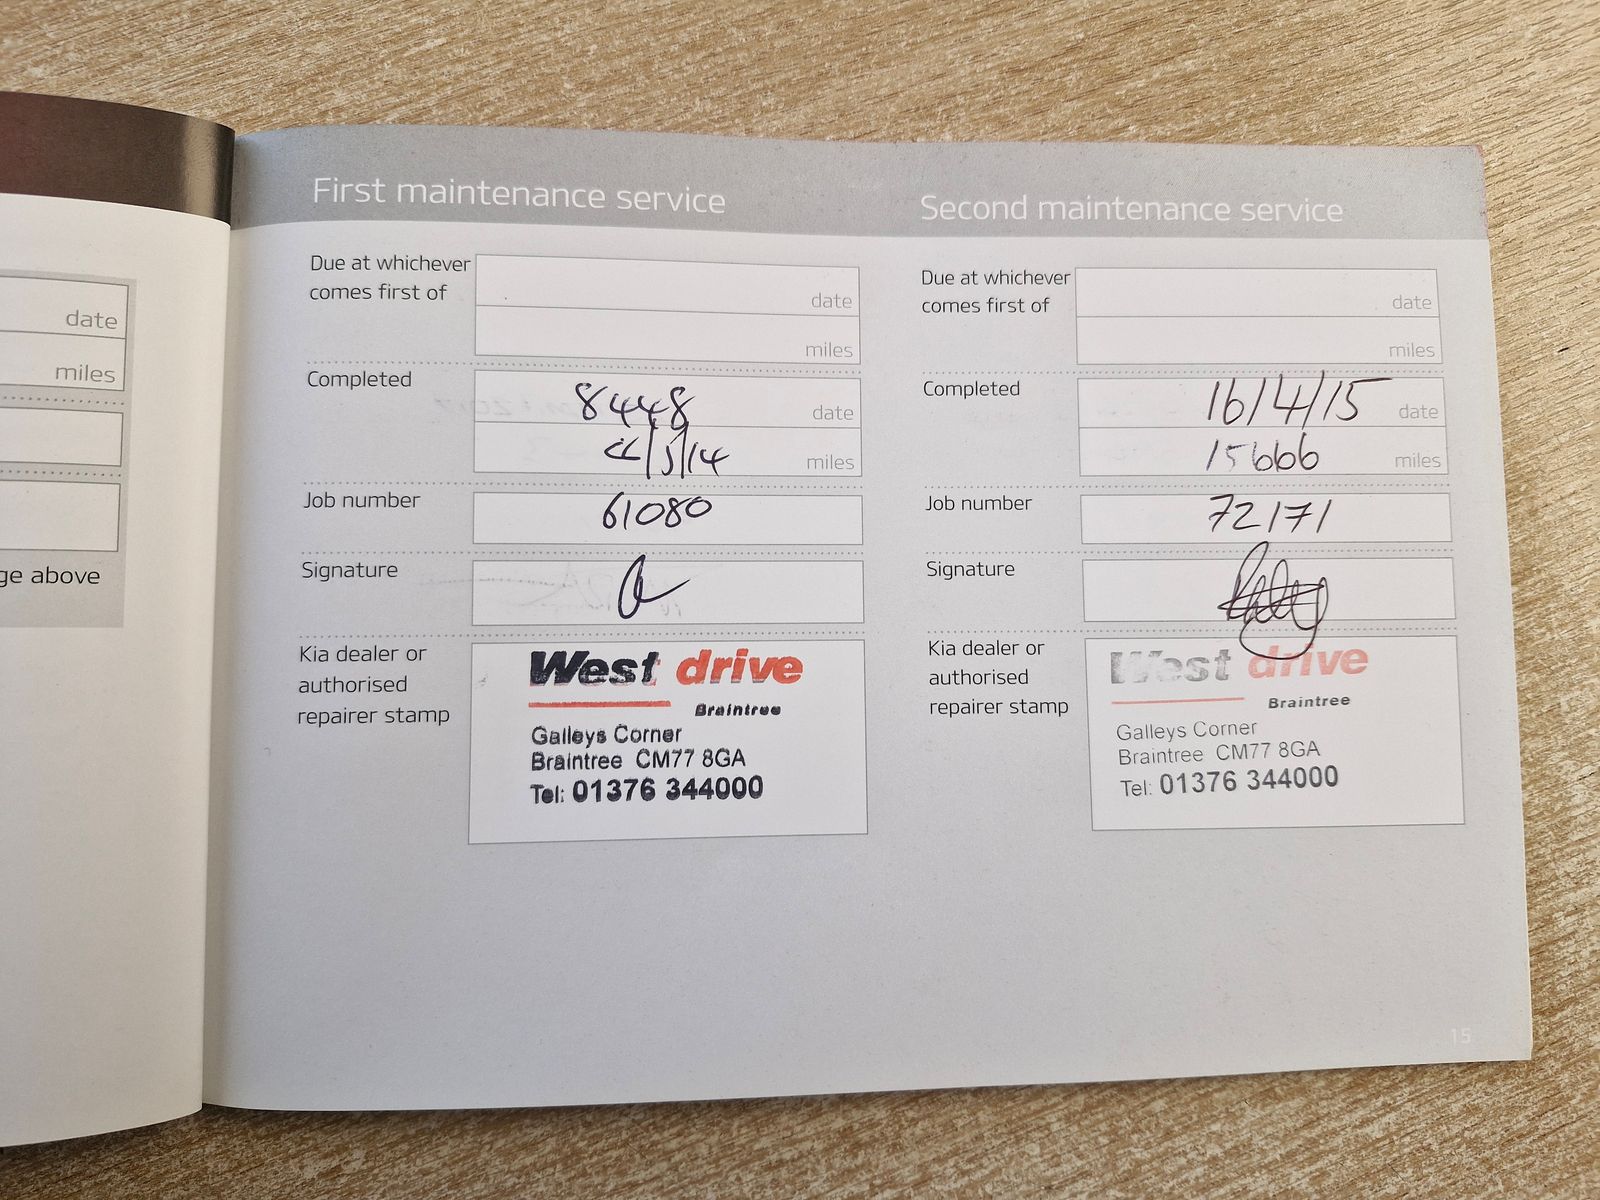 date
miles
ge above
First maintenance service
Due at whichever
comes first of
date
miles
Completed
8448 date
miles
Job number
61080
Signature
Kia dealer or
authorised
repairer stamp
West drive
Braintree
Galleys Corner
Braintree CM77 8GA
Tel: 01376 344000
Second maintenance service
Due at whichever
comes first of
date
miles
Completed
16/4/15 date
15666 miles
Job number
72171
Signature
Kia dealer or
authorised
repairer stamp
West drive
Braintree
Galleys Corner
Braintree CM77 8GA
Tel: 01376 344000
15